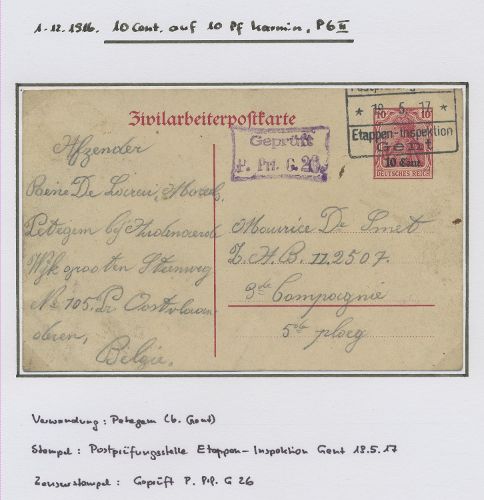 1.12.1916. 10 Cent. auf 10 Pf karmin, P6 II
Zivilarbeiterpostkarte
* 18. 5. 17 *
Etappen-Inspektion
Gent
10 10
10 Cent.
DEUTSCHES REICH
Geprüft
P. Prf. G. 26
Afzender
De Marcel,
Petegem bij Audenaerde
Wijk grooten Steenweg
No 105. Pr Oostvlaan
deren,
Belgie.
Maurice De Smet
Z. A. B. 11.2507.
3de Compagnie
5de ploeg
Verwendung: Petegem (b. Gent)
Stempel: Postprüfungsstelle Etappen-Inspektion Gent 18.5.17
Zensurstempel: Geprüft P. Prf. G 26